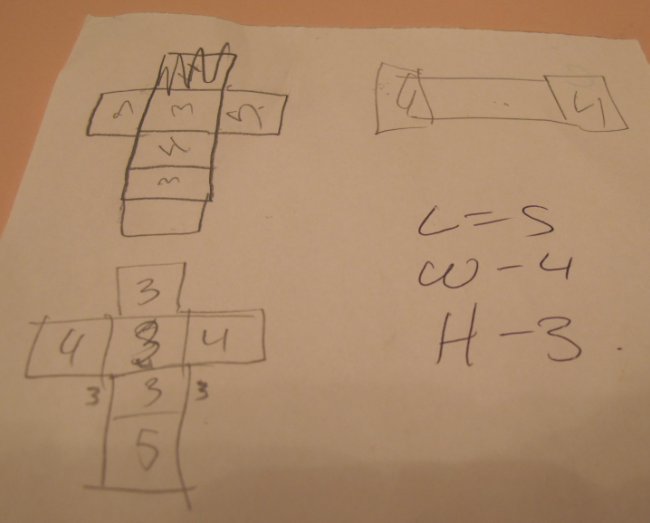 3
4
3
4
4
L=5
W-4
H-3
3
4
4
3
3
3
5